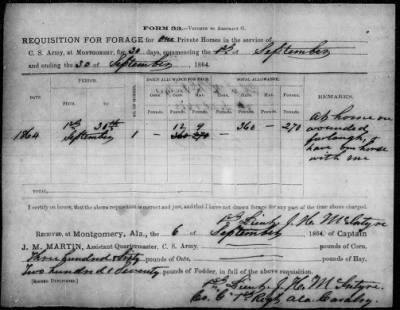 FORM 33.—VOUCHER TO ABSTRACT G.
REQUISITION FOR FORAGE for one Private Horses in the service of
C. S. Army, at MONTGOMERY, for 30 days, commencing the 1st of September
and ending the 30 of September, 1864.
DATE
PERIOD.
DAILY ALLOWANCE FOR EACH
TOTAL ALLOWANCE.
REMARKS.
FROM
Corn
Oats
Hay
Pounds. Pounds. Pounds. Pounds. Pounds. Pounds.
1864
1st 30th
September 1 — 12 9 — 360 — 270
360 270
At home on
wounded
furlough, I
have one horse
with me
TOTAL,
I certify on honor, that the above requisition is correct and just, and that I have not drawn forage for any part of the time above charged.
1st Lieut J. H. McIntyre
RECEIVED, at Montgomery, Ala., the 6 of September 1864, of Captain
J. M. MARTIN, Assistant Quartermaster, C. S. Army, pounds of Corn,
Three hundred & sixty pounds of Oats, pounds of Hay,
Two hundred & Seventy pounds of Fodder, in full of the above requisition.
[SIGNED DUPLICATES.]
1st Lieut J. H. McIntyre
Co. C 1st Regt Ala Cavalry